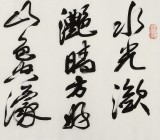 水光潋
灔晴方好
山色濛